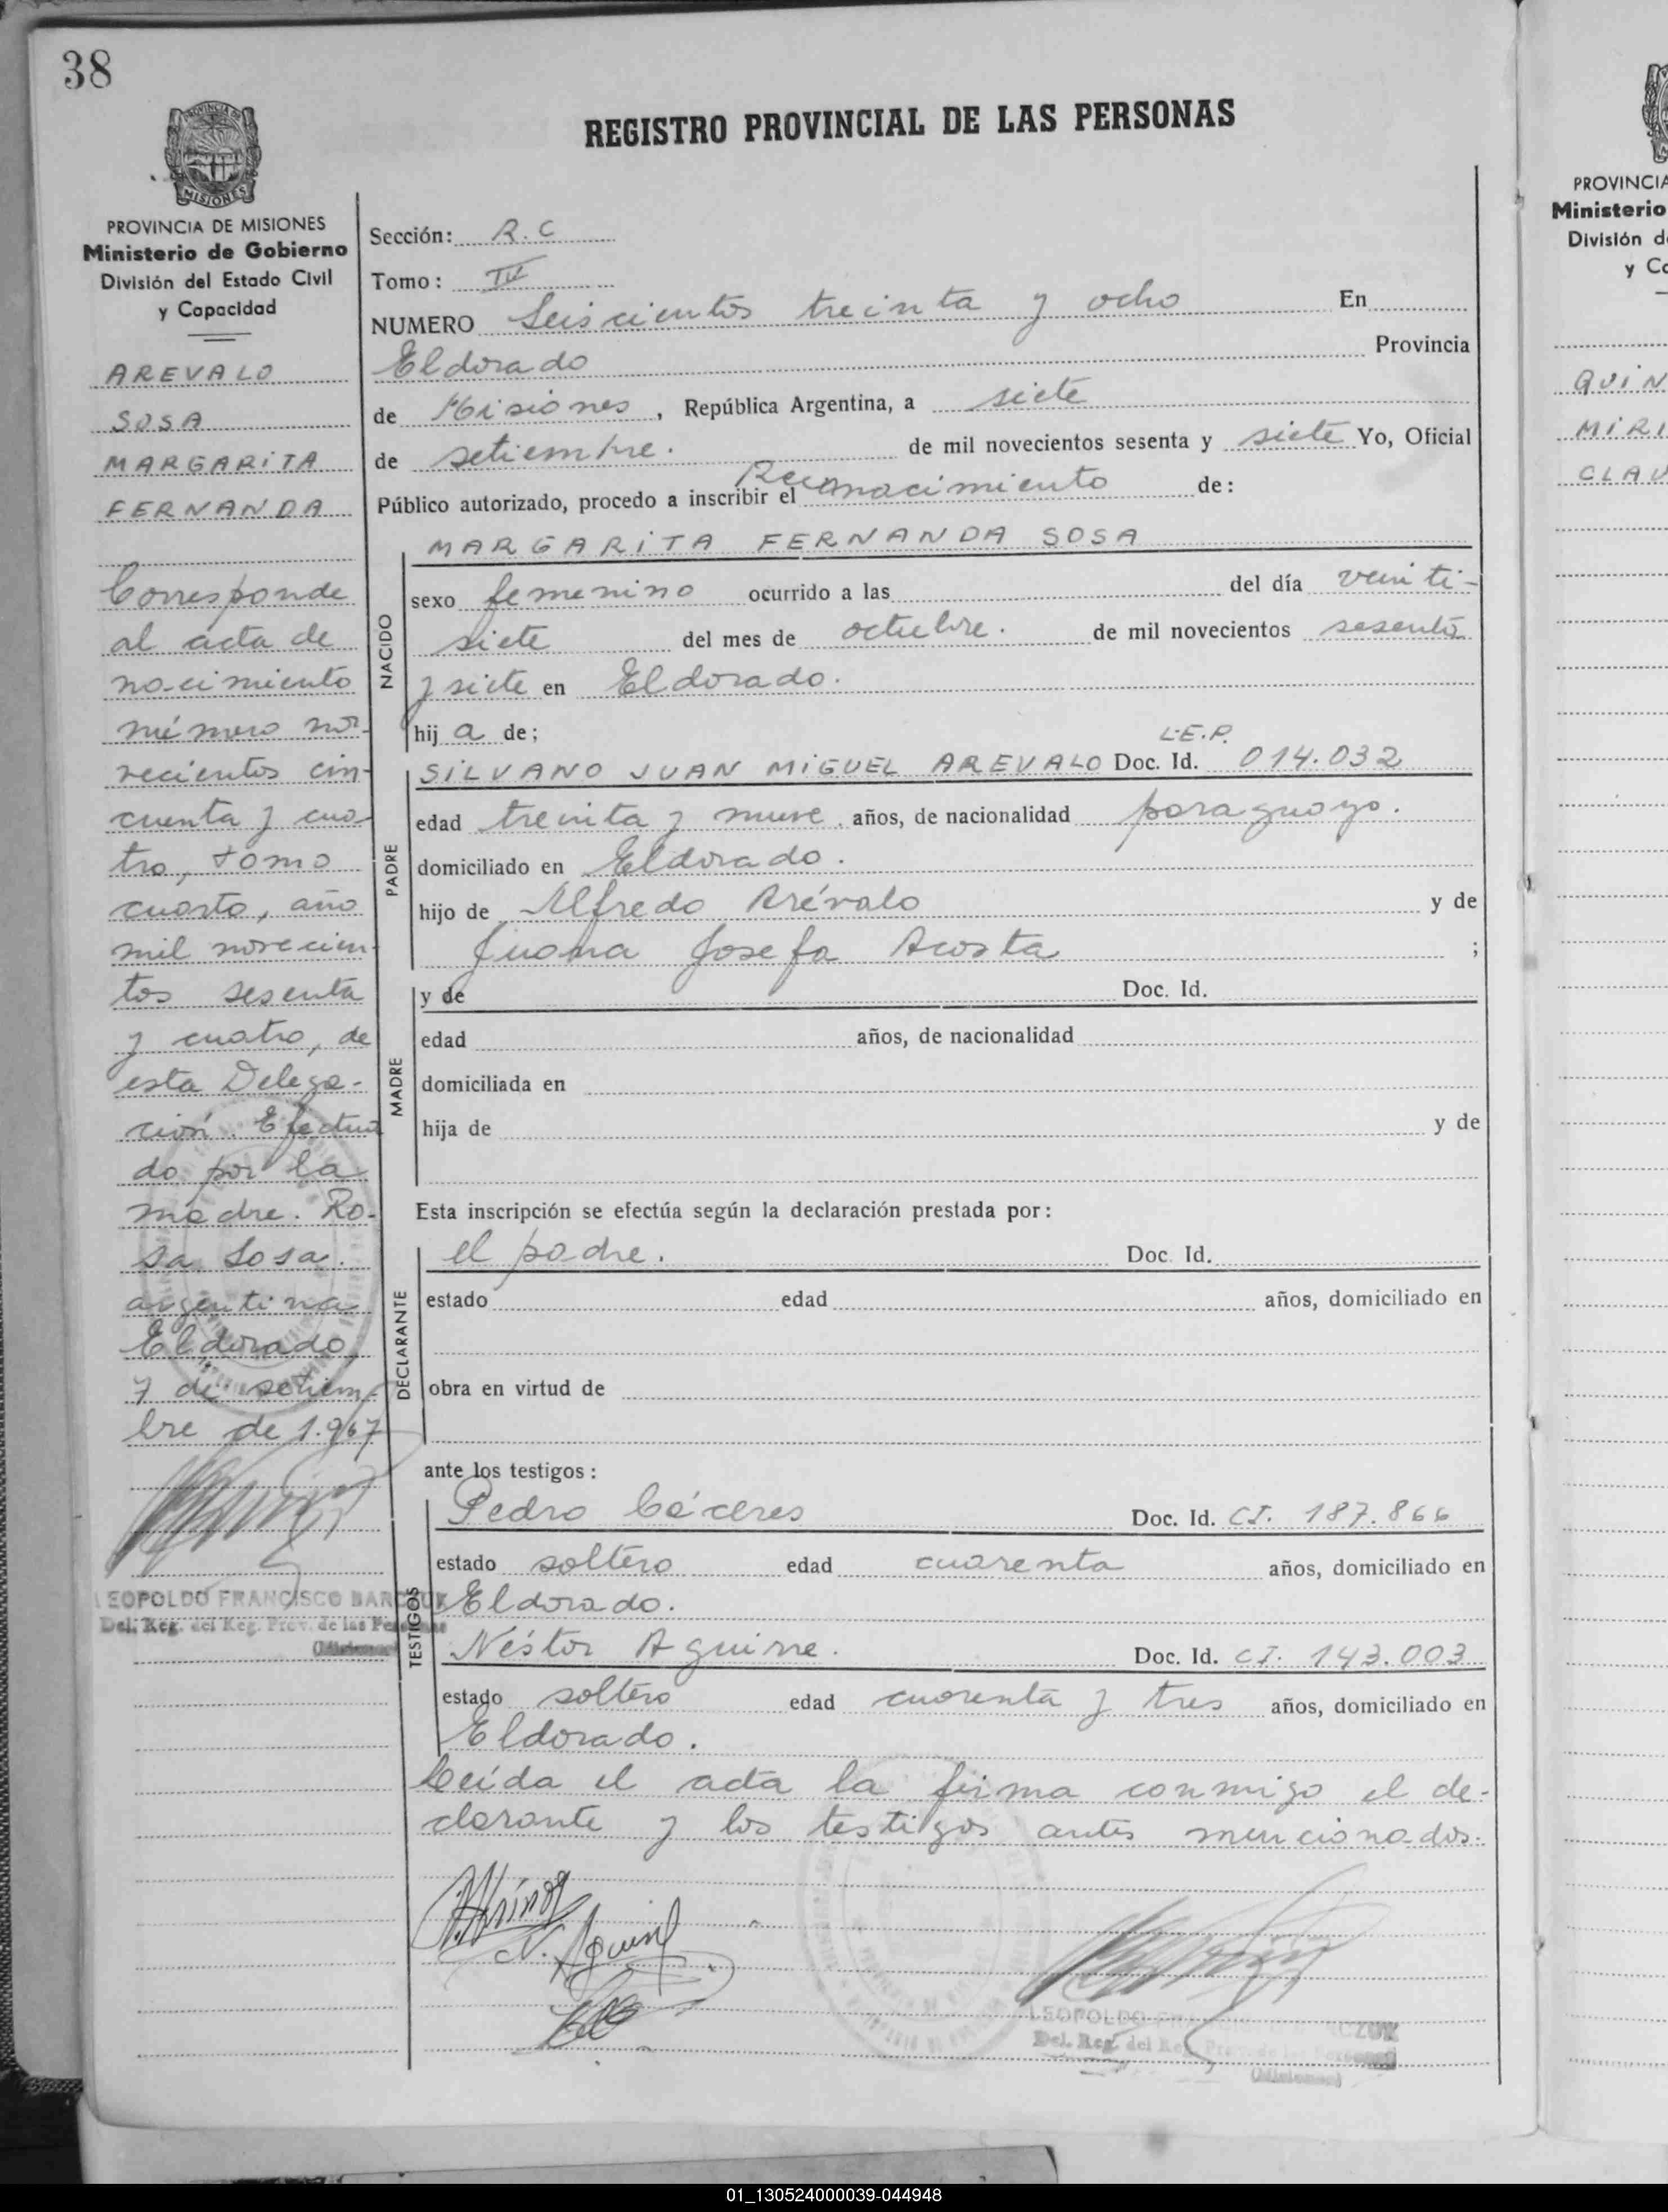 38
REGISTRO PROVINCIAL DE LAS PERSONAS
PROVINCIA DE MISIONES
Ministerio de Gobierno
División del Estado Civil
y Capacidad
AREVALO
SOSA
MARGARITA
FERNANDA
Corresponde
al acta de
nacimiento
número no-
vecientos cin-
cuenta y cua-
tro, tomo
cuarto, año
mil novecien-
tos sesenta
y cuatro, de
esta Delega-
ción. Efectua
do por la
madre. Ro-
sa Sosa.
argentina
Eldorado,
7 de setiem-
bre de 1.967
LEOPOLDO FRANCISCO
Del. Reg. del Reg. Prov. de las Personas
(Misiones)
Sección: R.C
Tomo: IV
NUMERO Seiscientos treinta y ocho En
Eldorado Provincia
de Misiones, República Argentina, a siete
de setiembre. de mil novecientos sesenta y siete Yo, Oficial
Público autorizado, procedo a inscribir el Reconocimiento de:
MARGARITA FERNANDA SOSA
NACIDO
sexo femenino ocurrido a las del día veinti-
siete del mes de octubre. de mil novecientos sesenta
y siete en Eldorado.
hija de;
L.E.P.
PADRE
SILVANO JUAN MIGUEL AREVALO Doc. Id. 014.032
edad treinta y nueve, años, de nacionalidad paraguayo.
domiciliado en Eldorado.
hijo de Alfredo Arévalo y de
Juana Josefa Acosta ;
MADRE
y de Doc. Id.
edad años, de nacionalidad
domiciliada en
hija de y de
Esta inscripción se efectúa según la declaración prestada por:
DECLARANTE
el padre. Doc. Id.
estado edad años, domiciliado en
obra en virtud de
ante los testigos:
TESTIGOS
Pedro Cáceres Doc. Id. CI. 187.866
estado soltero edad cuarenta años, domiciliado en
Eldorado.
Néstor Aguirre. Doc. Id. CI. 143.003
estado soltero edad cuarenta y tres años, domiciliado en
Eldorado.
Leída el acta la firma conmigo el de-
clarante y los testigos antes mencionados.
LEOPOLDO
Del. Reg. del Reg. Prov. de las Personas
(Misiones)
PROVINCIA
Ministerio
División de
y Ca
QUIN
MIRI
CLAU
01_130524000039-044948